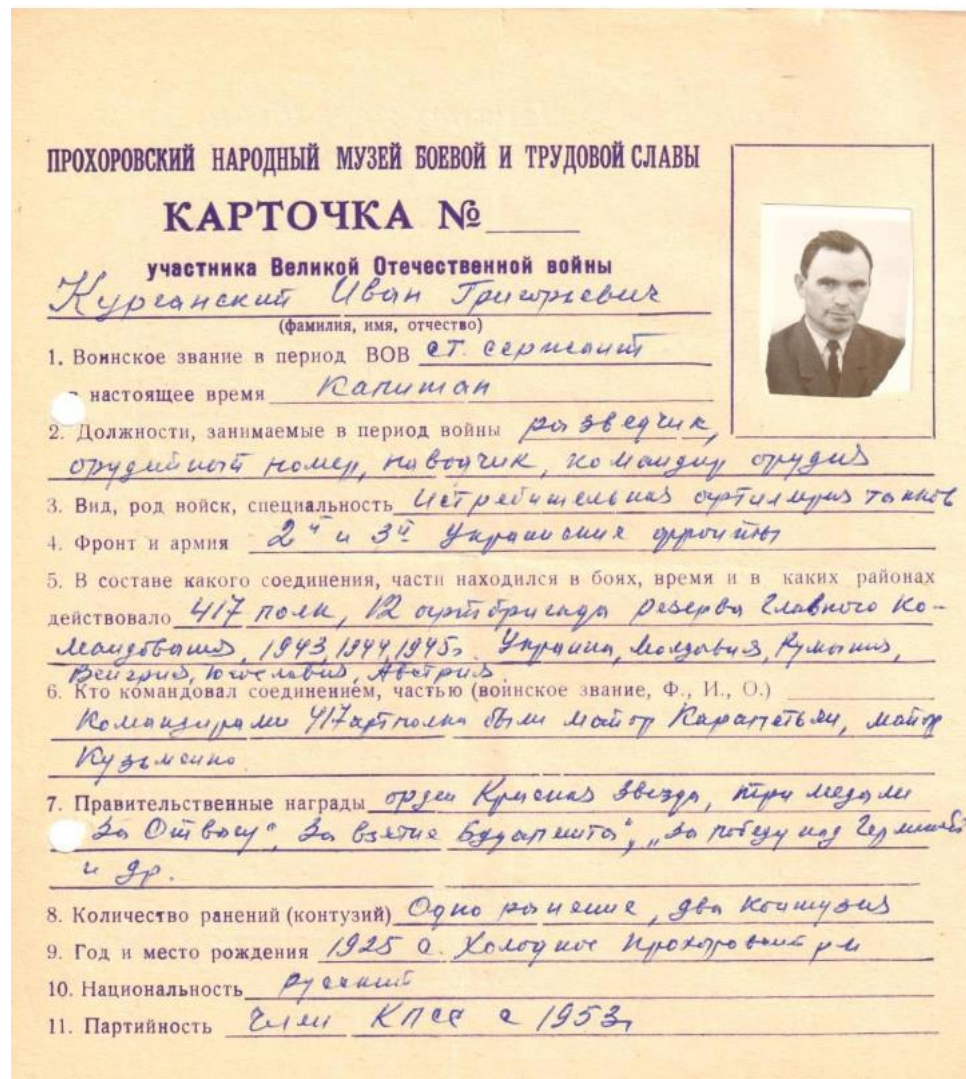 ПРОХОРОВСКИЙ НАРОДНЫЙ МУЗЕЙ БОЕВОЙ И ТРУДОВОЙ СЛАВЫ
КАРТОЧКА №
участника Великой Отечественной войны
Курганский Иван Григорьевич
(фамилия, имя, отчество)
1. Воинское звание в период ВОВ ст. сержант
настоящее время Капитан
2. Должности, занимаемые в период войны разведчик,
орудийный номер, наводчик, командир орудия
3. Вид, род войск, специальность Истребительная артилерия танков
4. Фронт и армия 2й и 3й Украинские фронты
5. В составе какого соединения, части находился в боях, время и в каких районах
действовало 417 полк, 12 артбригада резерва Главного Ко-
мандования, 1943, 1944, 1945г. Украина, Молдавия, Румыния,
Венгрия, Югославия, Австрия.
6. Кто командовал соединением, частью (воинское звание, Ф., И., О.)
Командирами 417 артполка были майор Карапетьян, майор
Кузьменко.
7. Правительственные награды орден Красная Звезда, три медали
За Отвагу", За взятие Будапешта", „За победу над Германией
и др.
8. Количество ранений (контузий) Одно ранение, два контузия
9. Год и место рождения 1925 с. Холодное Прохоровский р-н
10. Национальность русский
11. Партийность Член КПСС с 1953г